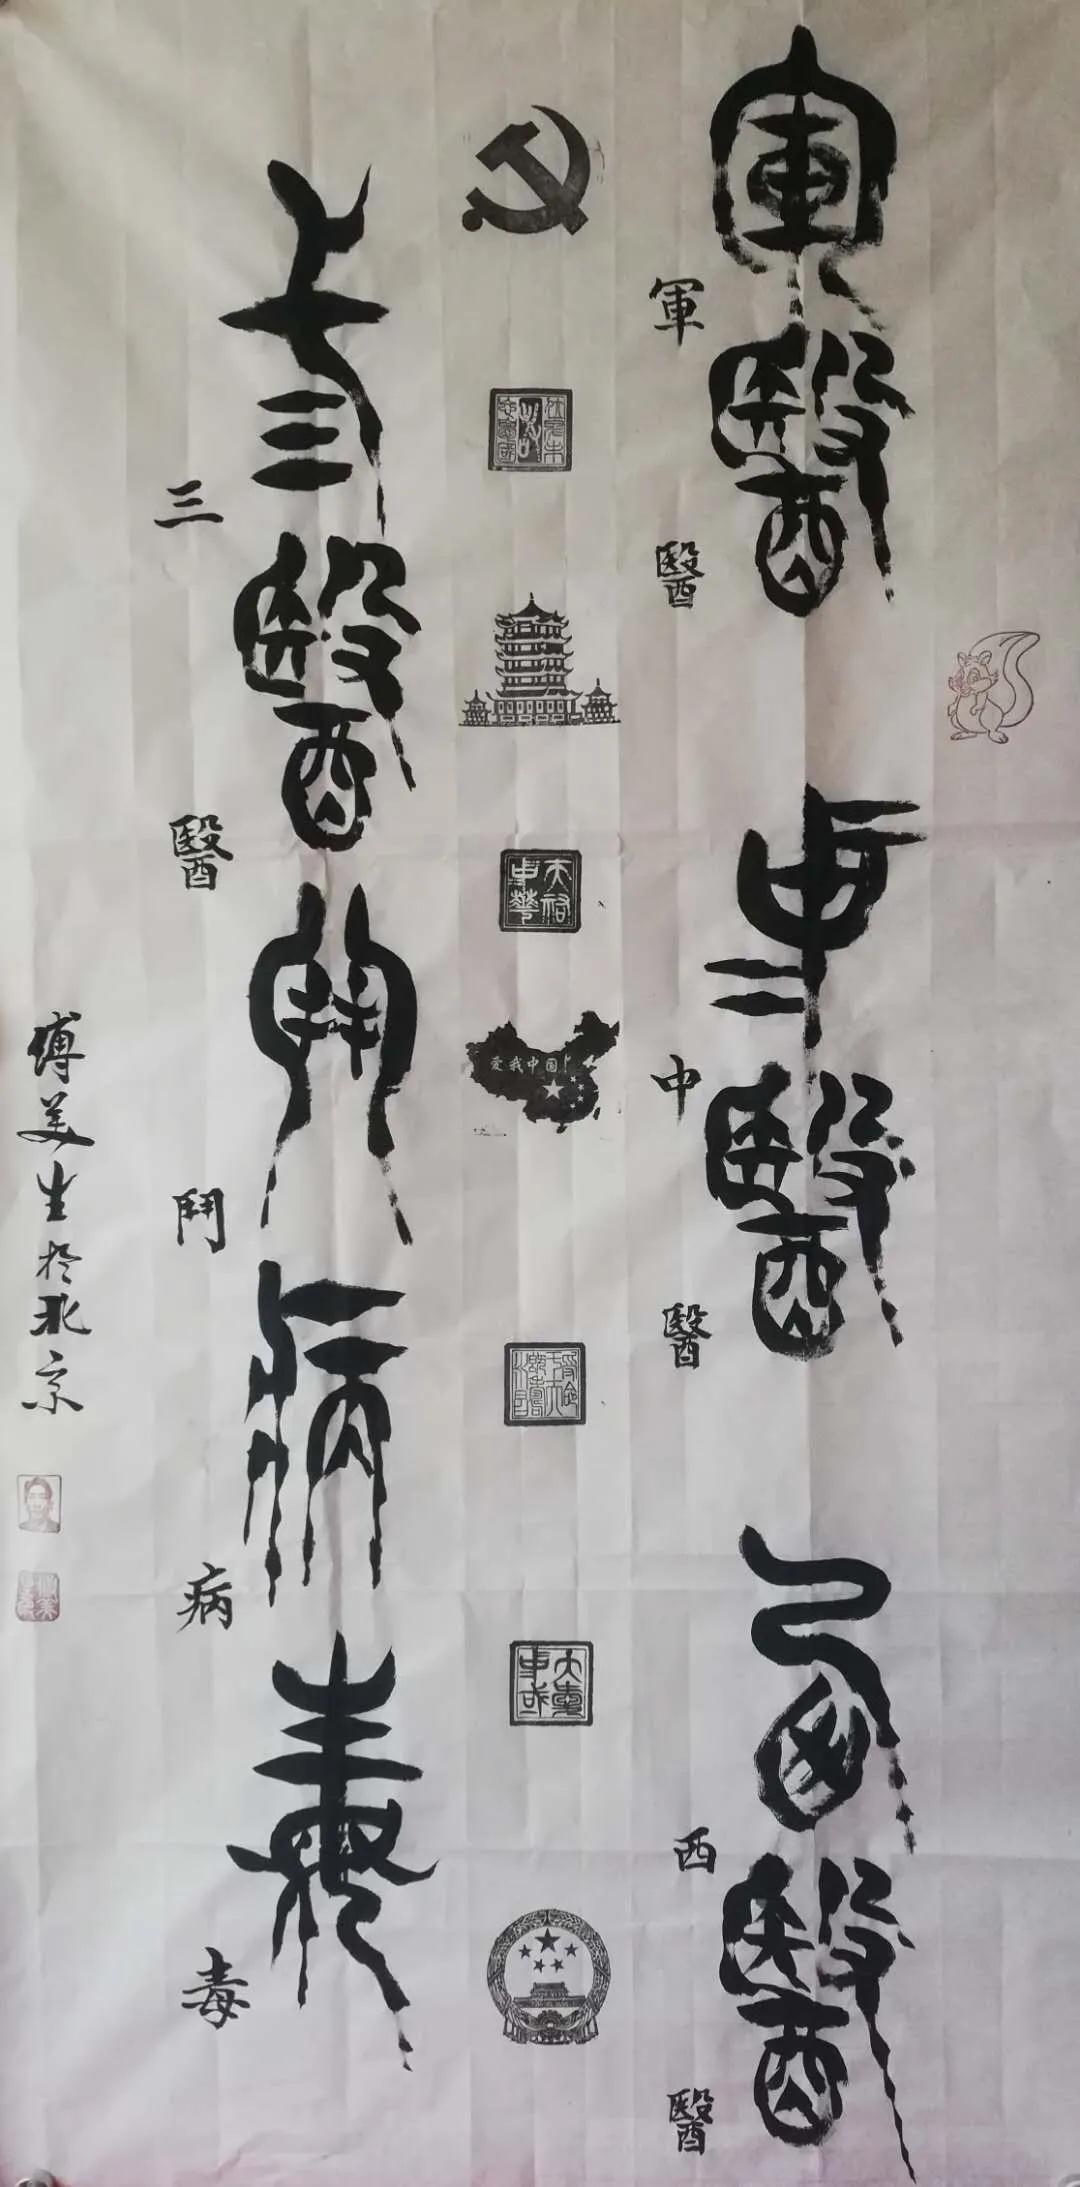 軍醫中醫西醫
軍醫中醫西醫
天祐中華
爱我中国
三醫鬥病毒
三醫鬥病毒
傅美生於北京